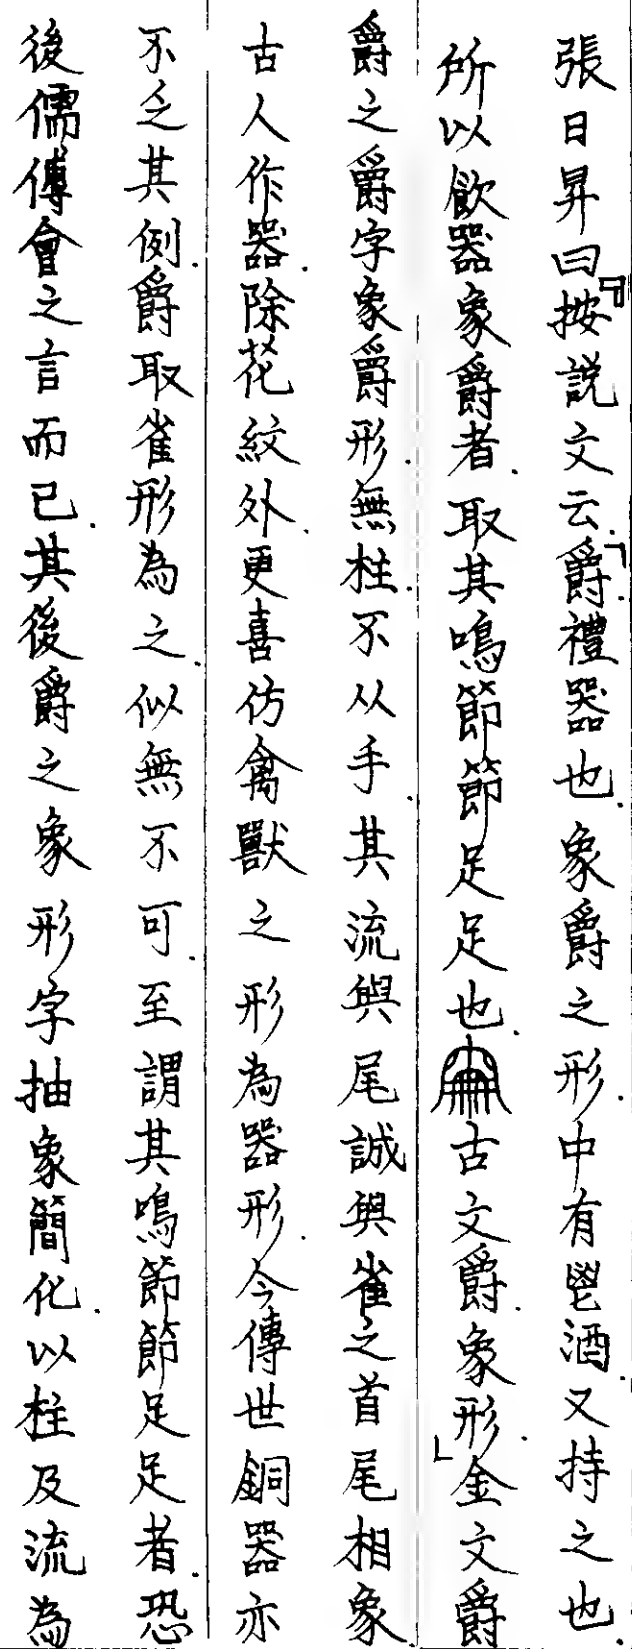 張日昇曰『按說文云「爵禮器也象爵之形中有鬯酒又持之也
所以飲器象爵者取其鳴節節足足也古文爵象形」金文爵
爵之爵字象爵形無柱不从手其流與尾誠與雀之首尾相象
古人作器除花紋外更喜仿禽獸之形為器形今傳世銅器亦
不乏其例爵取雀形為之似無不可至謂其鳴節節足足者恐
後儒傅會之言而已其後爵之象形字抽象簡化以柱及流為